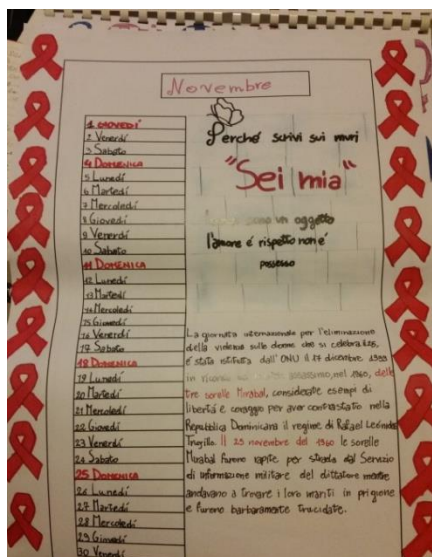 Novembre
1 GIOVEDÍ
2 Venerdí
3 Sabato
4 DOMENICA
5 Lunedí
6 Martedí
7 Mercoledí
8 Giovedí
9 Venerdí
10 Sabato
11 DOMENICA
12 Lunedí
13 Martedí
14 Mercoledí
15 Giovedí
16 Venerdí
17 Sabato
18 DOMENICA
19 Lunedí
20 Martedí
21 Mercoledí
22 Giovedí
23 Venerdí
24 Sabato
25 DOMENICA
26 Lunedí
27 Martedí
28 Mercoledí
29 Giovedí
30 Venerdí
Perché scrivi sui muri
"Sei mia"
sono un oggetto
l'amore é rispetto non é
possesso
La giornata internazionale per l'eliminazione
della violenza sulle donne che si celebra
é stata istituita dall'ONU il 17 dicembre 1999
in nel 1960, delle
tre sorelle Mirabal, considerate esempi di
libertá e coraggio per aver contrastato nella
Repubblica Dominicana il regime di Rafael Leónidas
Trujillo. Il 25 novembre del 1960 le sorelle
Mirabal furono rapite per strada dal Servizio
di informazione militare del dittatore mentre
andavano a trovare i loro mariti in prigione
e furono barbaramente trucidate.